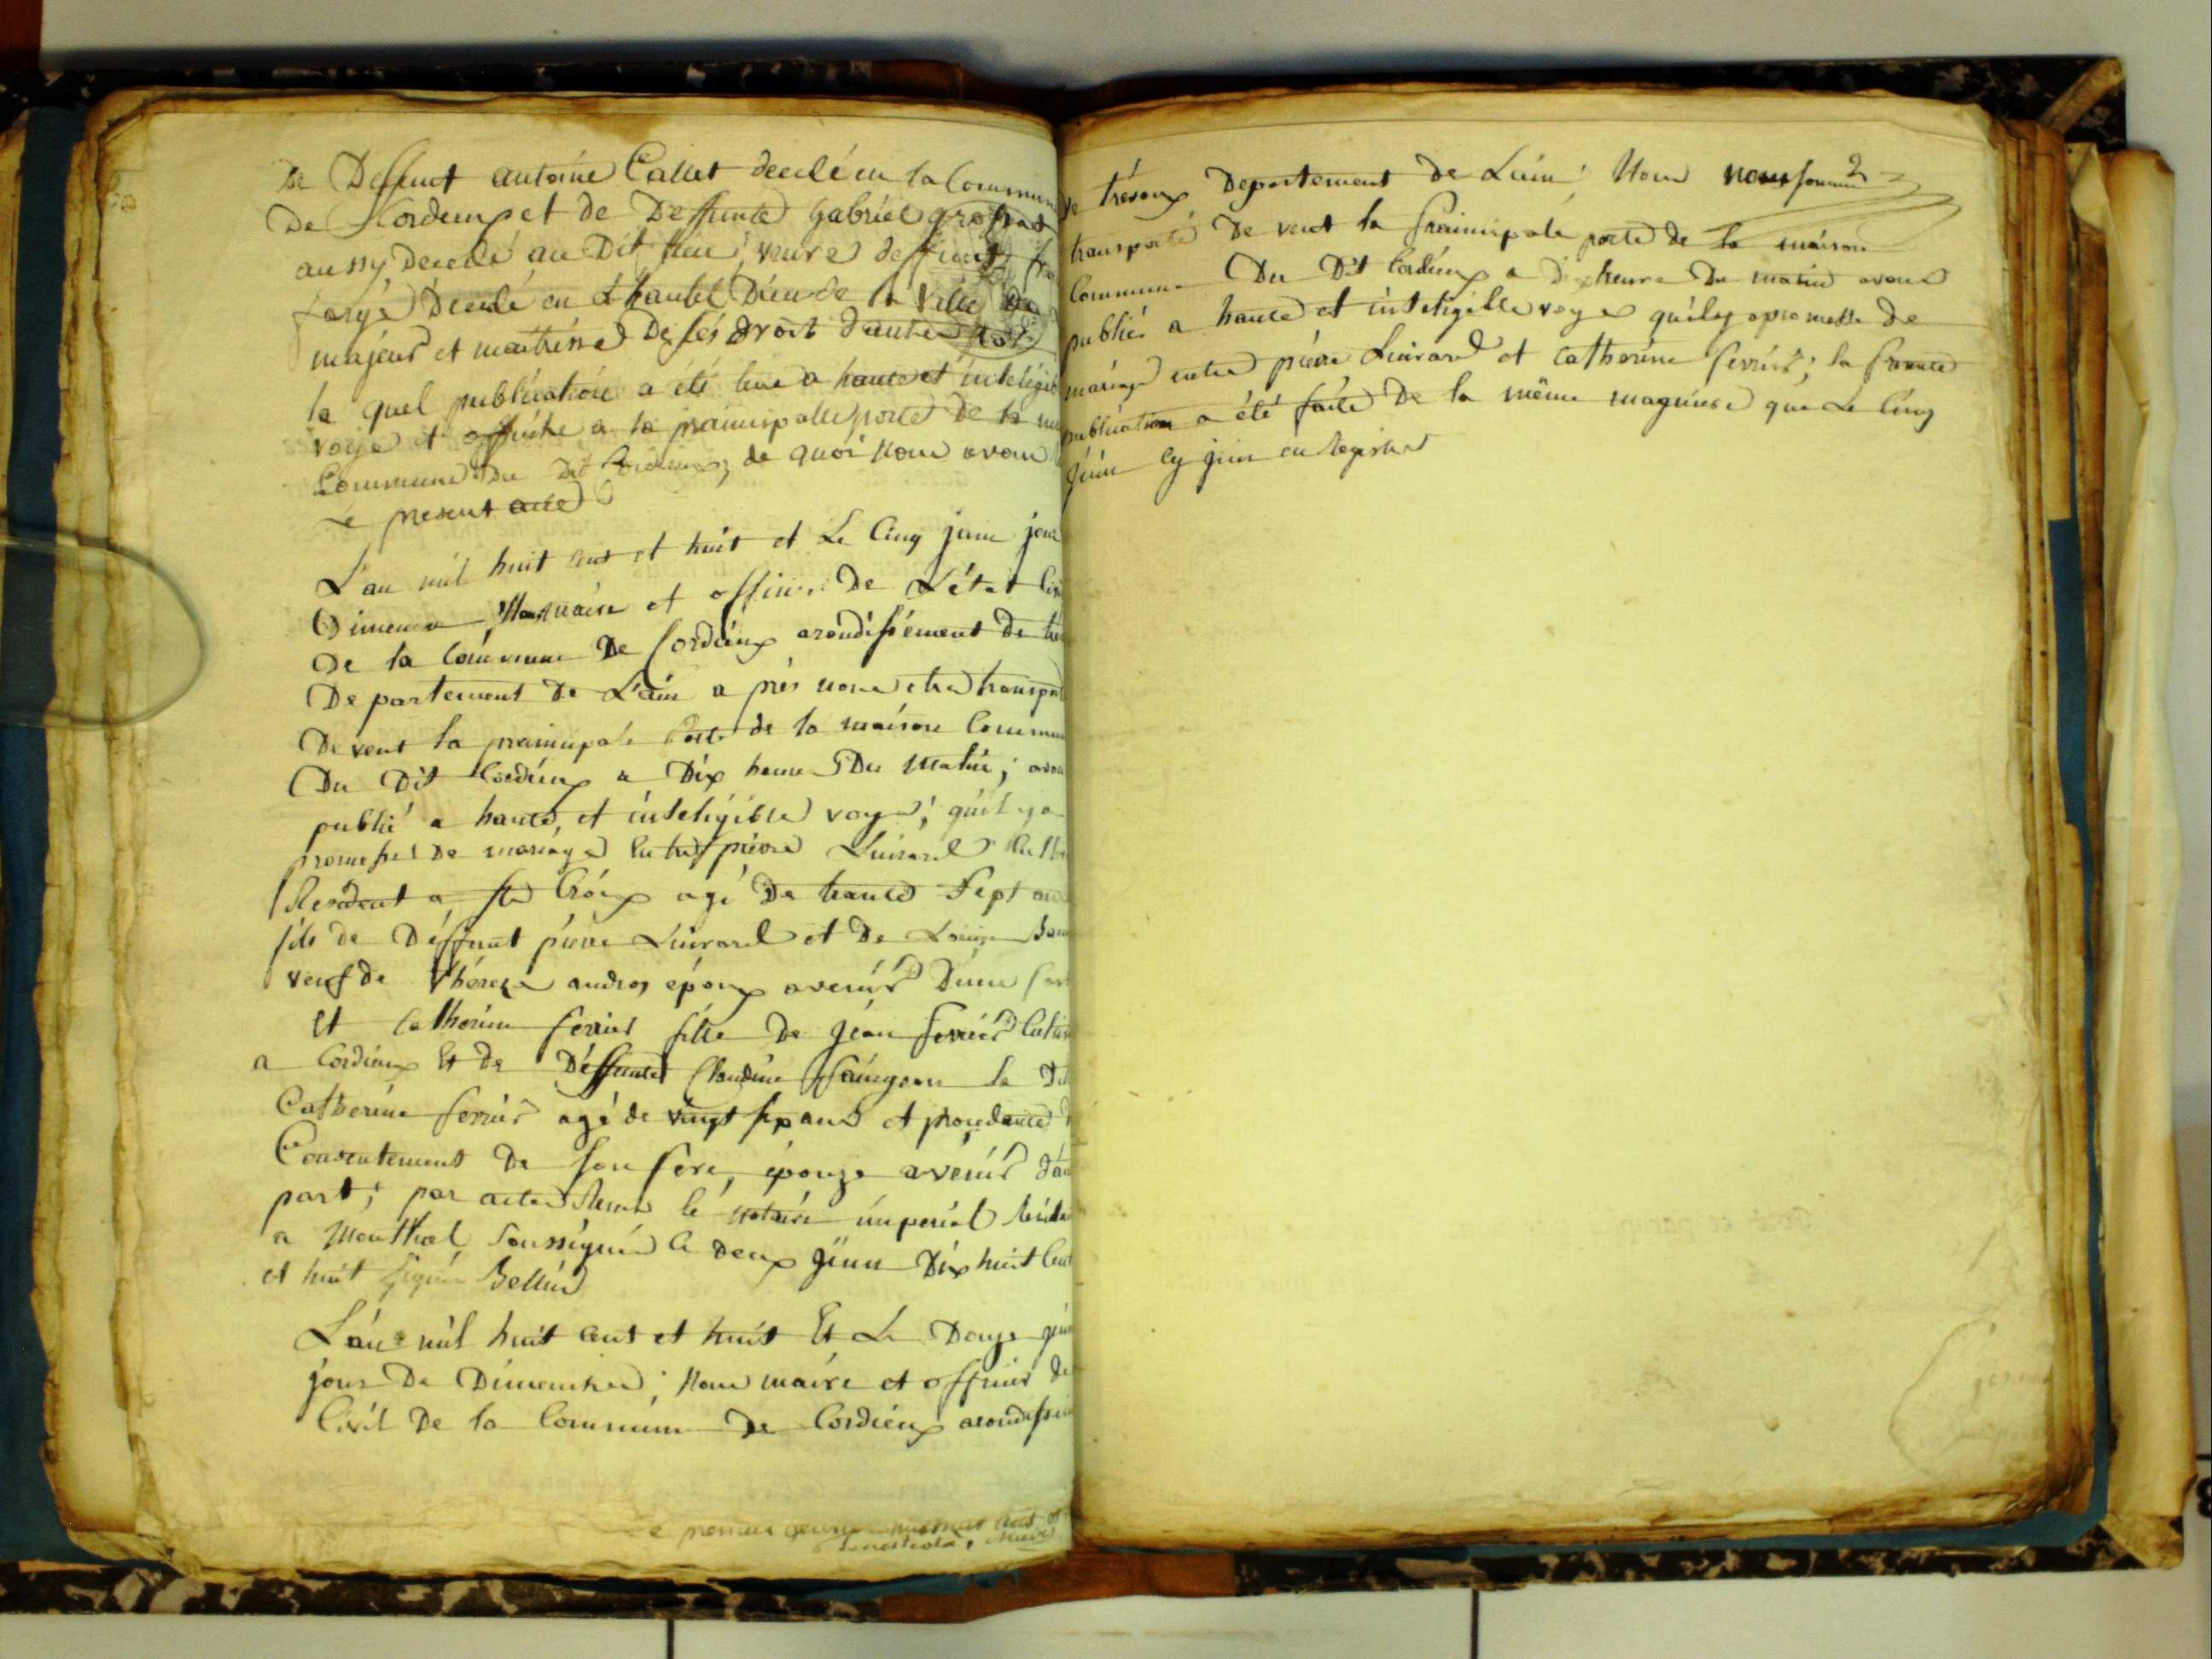 de Deffunt antoine Callet decedé en la Commune
De Cordieux et de Deffunte gabriel grossat
aussy Decedé au Dit lieu, veuve deffunt
forge Decedé en L'hautel Dieu de la Ville de
majeur et maitresse De ses droit d'autre
la quel publication a été lüe a haute et inteligib
voye et affiché a la prainsipalle porte de la
Commune Du Dit Cordieux; de quoi Nous avons
Le present acte
L'an mil huit cent et huit et Le Cinq juin jour
Dimenche Nous maire et officier De L'état Civ
De la Commune De Cordieux arondissement De tre
Departement De L'ain a près nous etre transpor
Devent la prainsipale Porte de la maison Commu
Du Dit Cordieux a Dix heure Du Matin; avon
publié a haute, et inteligible voye; qu'il y a
promesse De mariage Entre pierre Luivard Cultiv
Resident a Ste Croix agé De trante Sept an
fils de Deffunt pierre Luivard et De Louise
veuf de thérèze andros époux avenir D'une
Et Catherine ferrier fille De Jéan ferrier Cultiv
a Cordieux Et De Deffunte Claudine la Dit
Catherine ferrier agé de vingt six ans et
Consentement De son Père, épouze avénir d'au
part; par acte Reçu le notaire imperial Résidan
a Montluel Soussigné le deux Jüin Dix huit Cent
et huit signé Bellin
L'an mil huit cent et huit Et Le Douze jüin
jour De Dimenche; Nous maire et officier de
Civil De la Commune De Cordieux arondissem
de trévoux Departement De L'ain; Nous nous somme
transporté De vent la prainsipale porte de la maison
Commune Du Dit Cordieux a Dix heure Du matin avons
publié a haute et inteligible voye qu'il y a promesse De
mariage entre pierre Luivard et Catherine ferrier; la présente
publication a été faite De la même magnière que Le Cinq
Juin Cy join en Registre